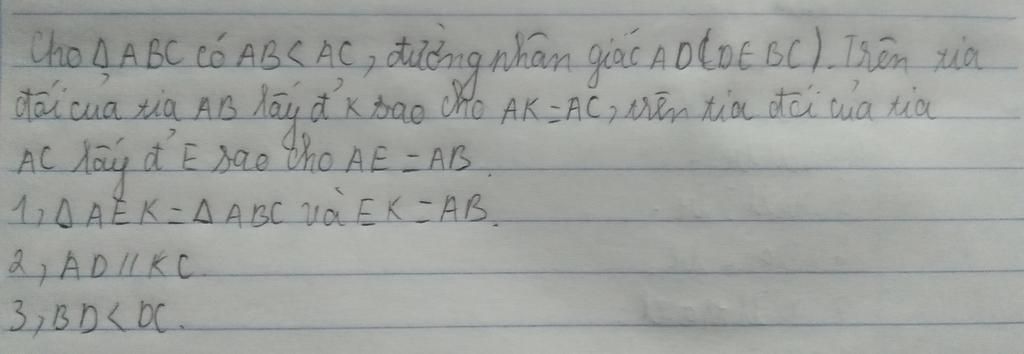 Cho Δ ABC có AB < AC, đường nhân giác AD (D ∈ BC). Trên tia
đối của tia AB lấy đ' K sao cho AK = AC, trên tia đối của tia
AC lấy đ' E sao cho AE = AB.
1, Δ AEK = Δ ABC và EK = AB.
2, AD // KC
3, BD < DC.